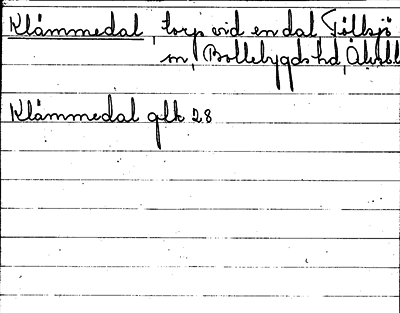 Klåmmedal, torp vid en dal, Töllsjö
sn, Bollebygds hd, Älvsbl
Klåmmedal glk 28